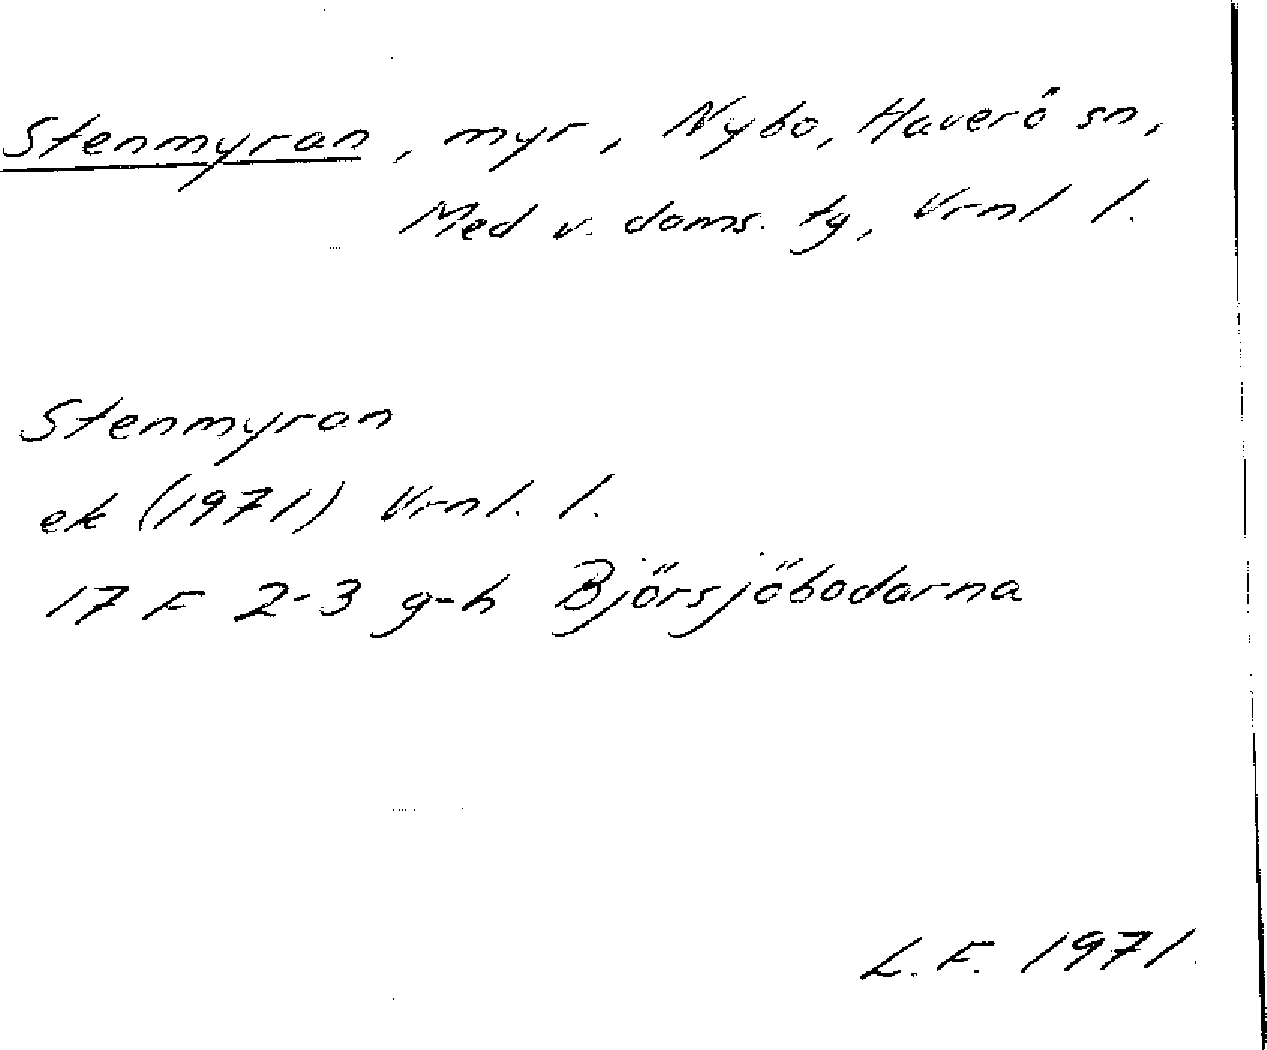 Stenmyran, myr, Nybo, Haverö sn,
Med v. doms. tg, Vrnl l.
Stenmyran
ek (1971) Vrnl. l.
17 F 2-3 g-h Björsjöbodarna
L.F. 1971.